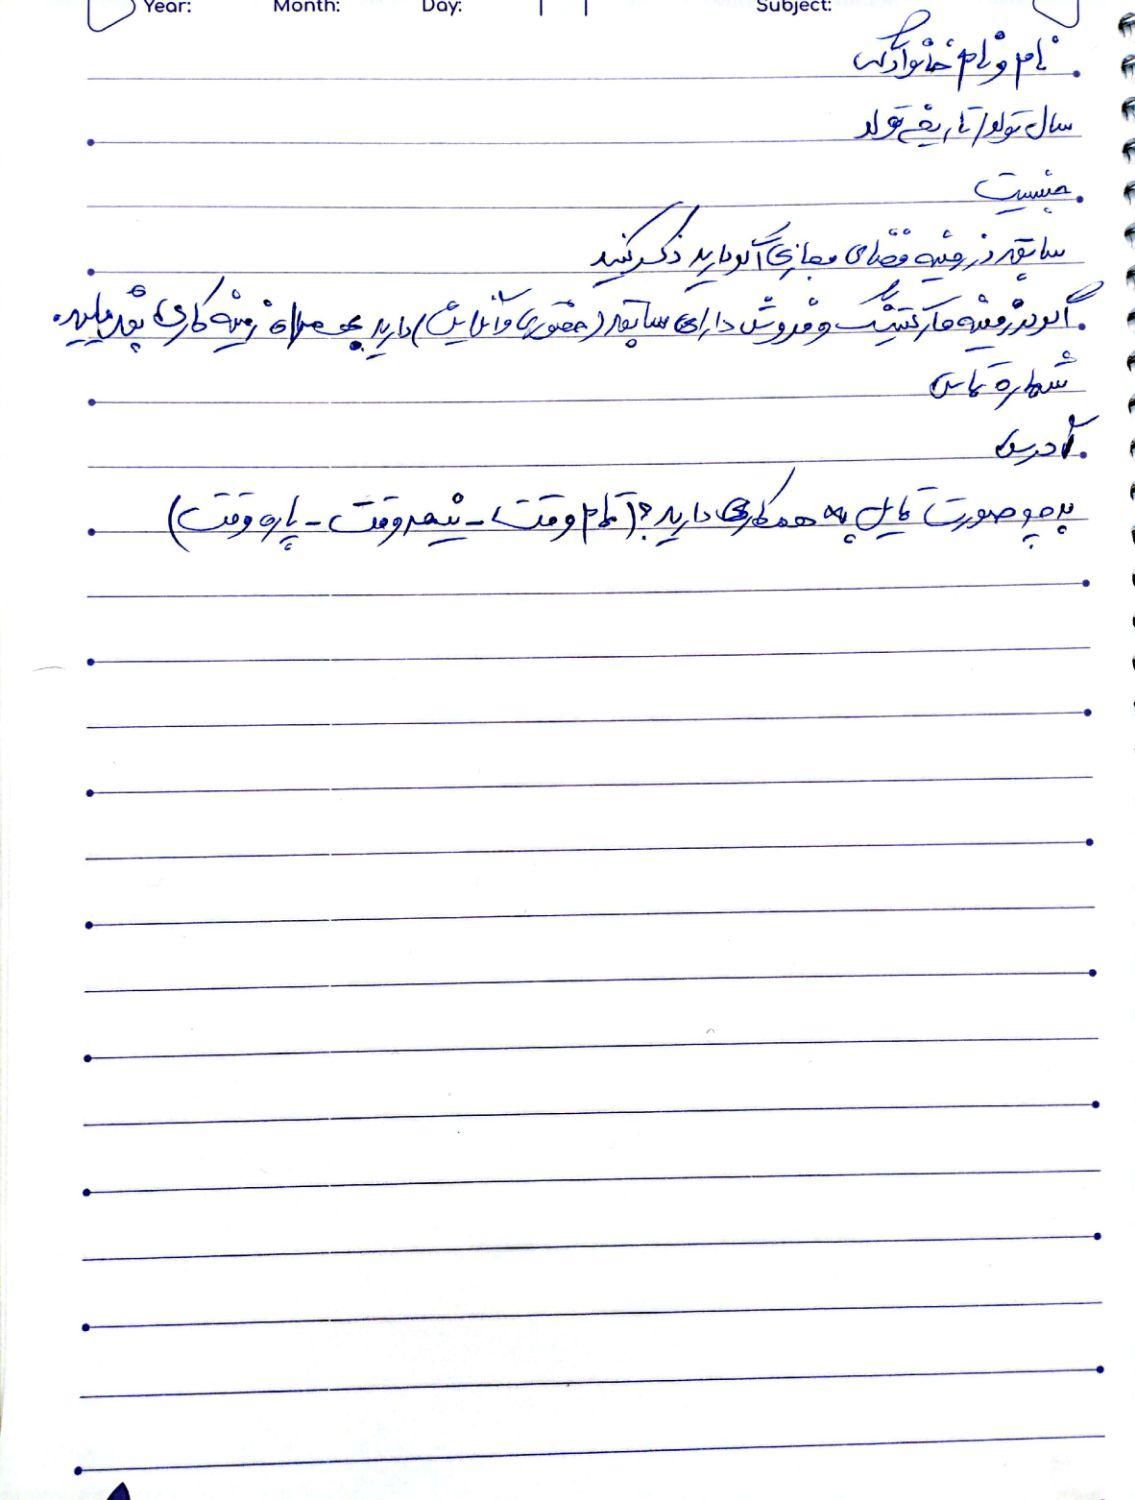 Year: Month: Day: | | Subject:
نام و نام خانوادگی
سال تولد / تاریخ تولد
جنسیت
سابقه در زمینه فضای مجازی اگر دارید ذکر کنید
اگر در زمینه مارکتینگ و فروش دارای سابقه (حضوری و آنلاین) دارید به همراه زمینه کاری بفرمایید.
شماره تماس
آدرس
به چه صورت تمایل به همکاری دارید؟ (تمام وقت - نیمه وقت - پاره وقت)